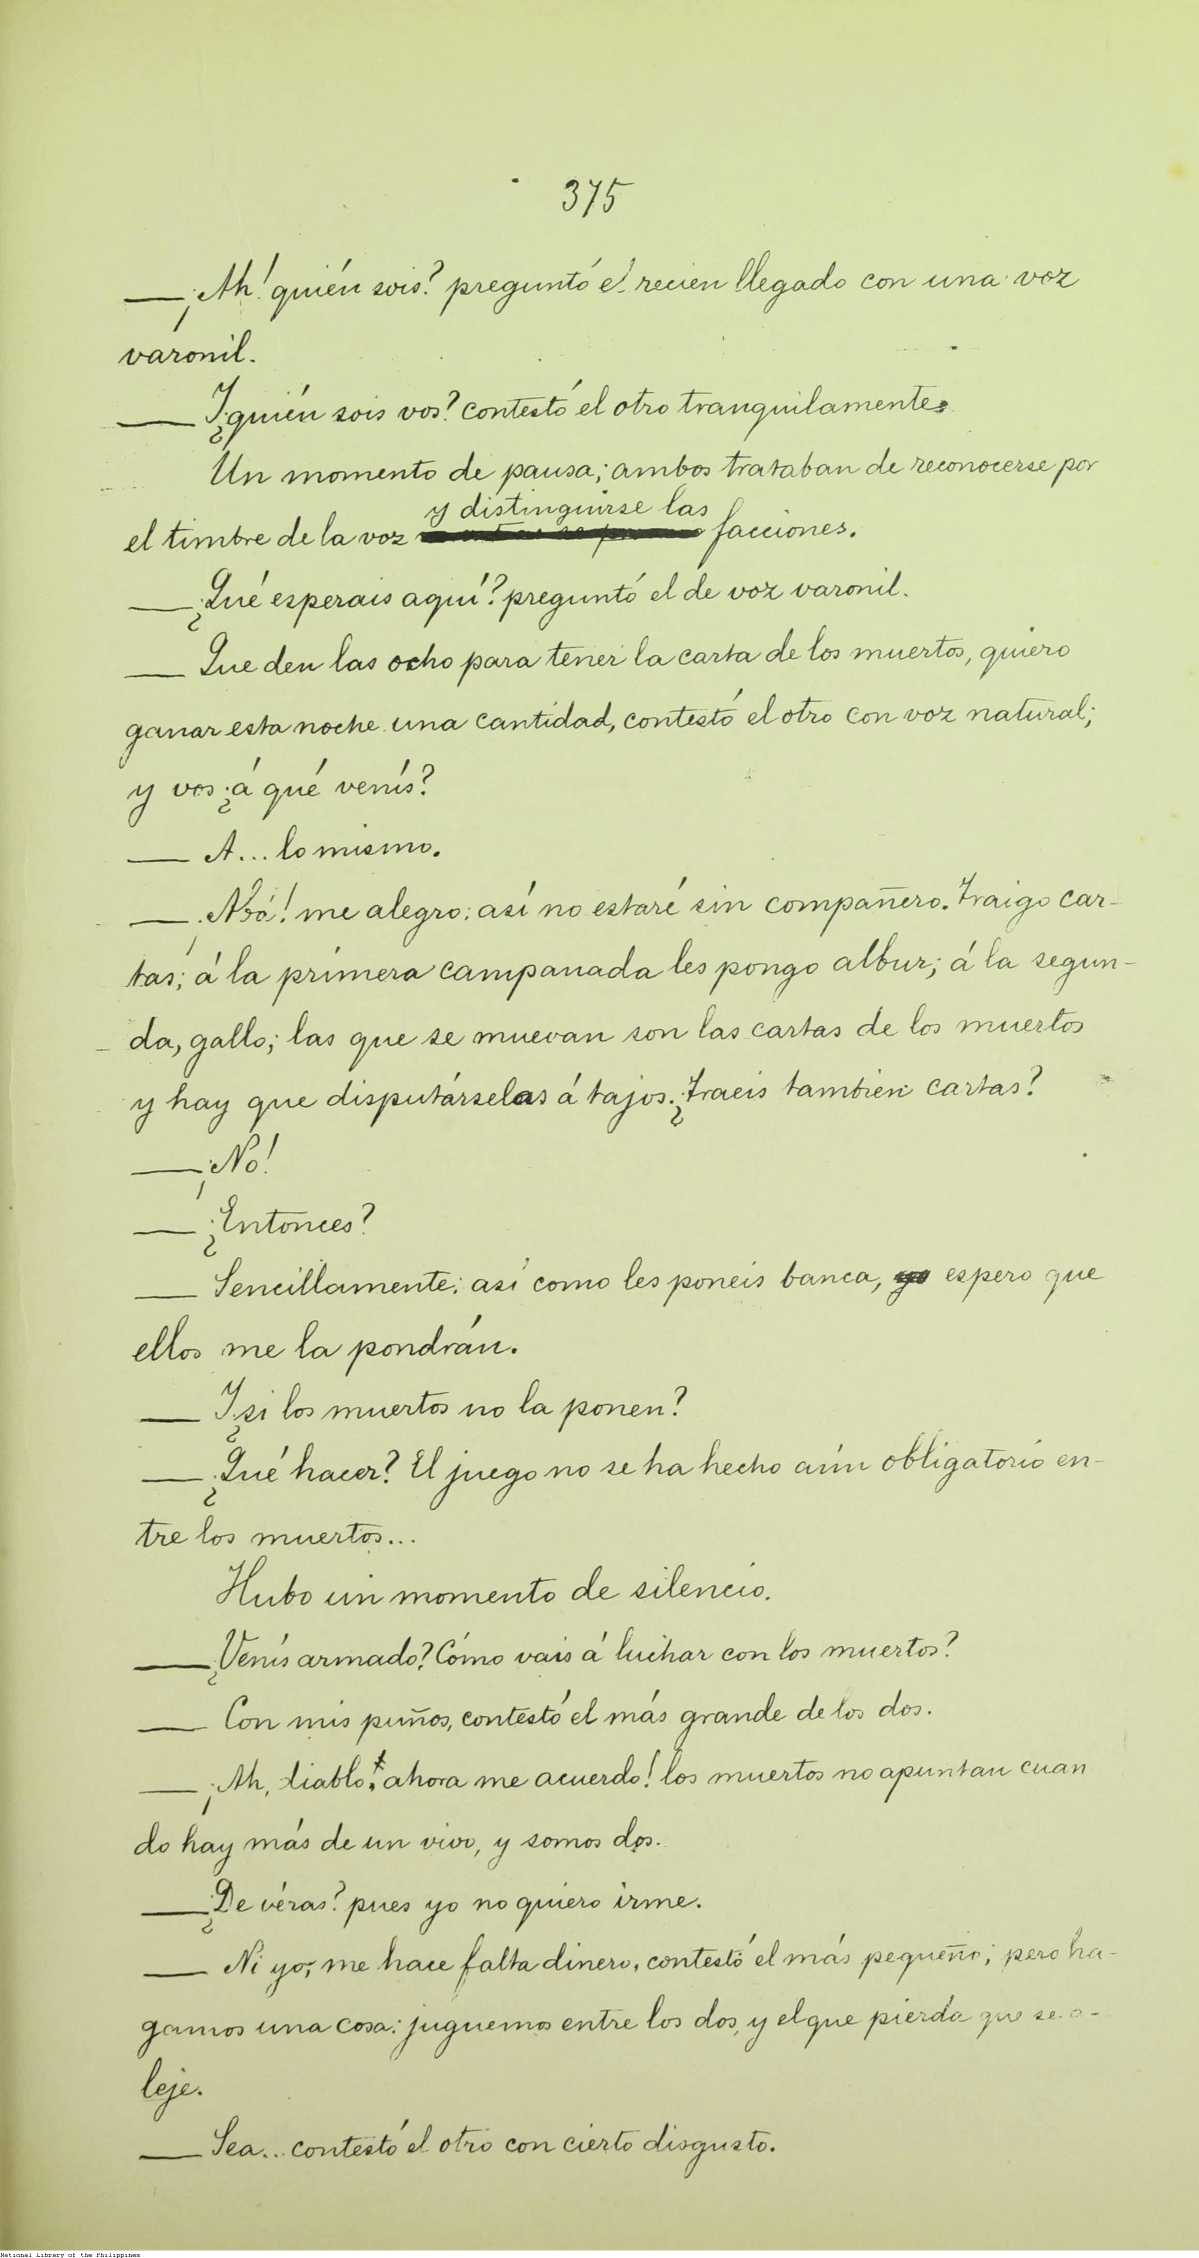 375
— ¡Ah! quién sois? preguntó el recien llegado con una voz
varonil.
— Y ¿quién sois vos? contestó el otro tranquilamente.
Un momento de pausa; ambos trataban de reconocerse por
y distinguirse las
el timbre de la voz facciones.
— ¿Qué esperais aquí? preguntó el de voz varonil.
— Que den las ocho para tener la carta de los muertos, quiero
ganar esta noche una cantidad, contestó el otro con voz natural;
y vos ¿á qué venís?
— A... lo mismo.
— ¡Abá! me alegro; así no estaré sin compañero. Traigo car-
tas; á la primera campanada les pongo albur; á la segun-
da, gallo; las que se muevan son las cartas de los muertos
y hay que disputárselas á tajos. ¿Traeis tambien cartas?
— ¡No!
— ¿Entonces?
— Sencillamente: así como les poneis banca, yo espero que
ellos me la pondrán.
— Y ¿si los muertos no la ponen?
— ¿Qué hacer? El juego no se ha hecho aún obligatorio en-
tre los muertos...
Hubo un momento de silencio.
— ¿Venís armado? Cómo vais á luchar con los muertos?
— Con mis puños, contestó el más grande de los dos.
— ¡Ah, diablo, ahora me acuerdo! los muertos no apuntan cuan
do hay más de un vivo, y somos dos.
— ¿De véras? pues yo no quiero irme.
— Ni yo, me hace falta dinero, contestó el más pequeño; pero ha-
gamos una cosa: juguemos entre los dos, y el que pierda que se a-
leje.
— Sea... contestó el otro con cierto disgusto.
National Library of the Philippines